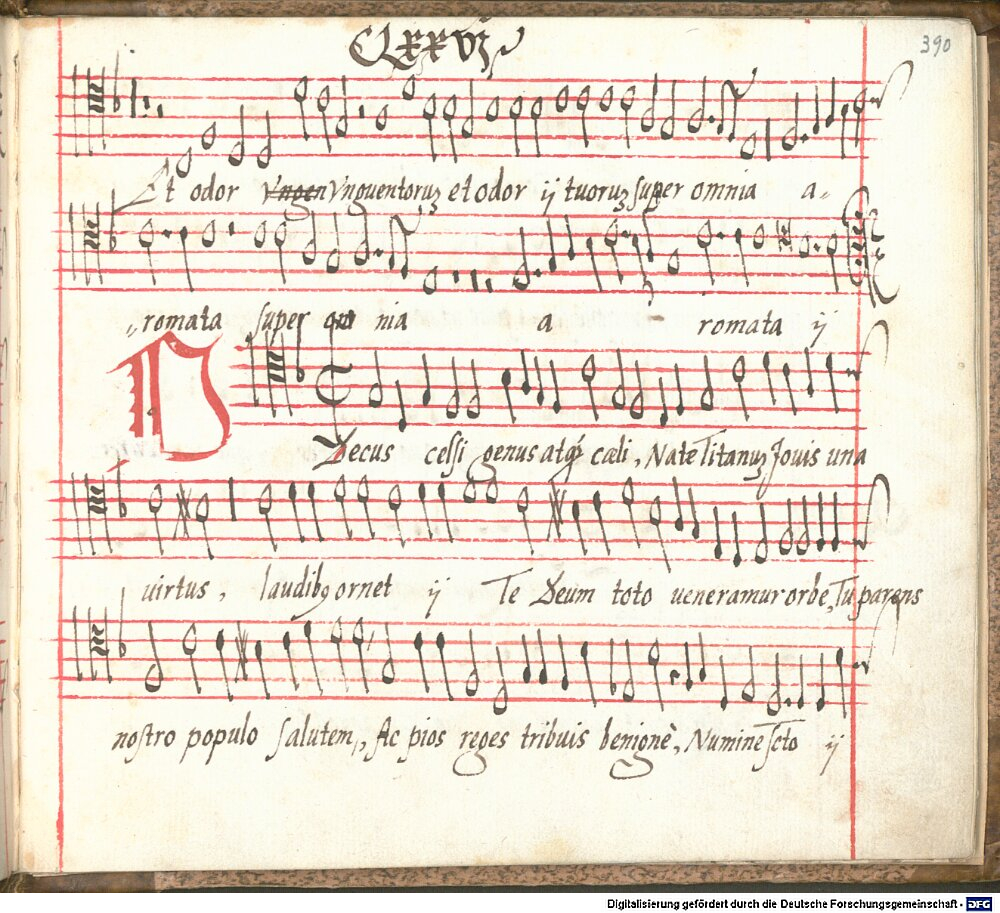 CLxxvȝ
390
Et odor Vngen Vnguentoruʒ et odor ij tuoruʒ super omnia a-
romata super nia a - romata ij
Decus celsi genus atqꝫ cæli, Nate Titanuʒ Jouis una
uirtus, laudibꝫ ornet ij Te Deum toto ueneramur orbe, Tu parens
nostro populo salutem, Ac pios reges tribuis benignè, Numine scto ij
Digitalisierung gefördert durch die Deutsche Forschungsgemeinschaft - DFG